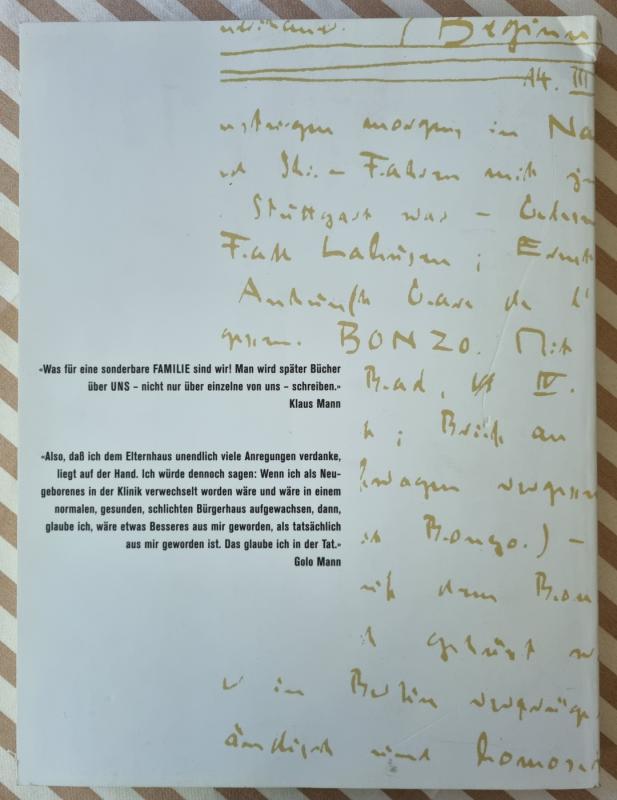 (Beginn
14. III
morgens in Na
Ski-Fahren mit
Stuttgart war –
Fall Lahusen; Ernst
Ankunft Gare de l'
gessen. BONZO. Mit
Bad, IV.
«Was für eine sonderbare FAMILIE sind wir! Man wird später Bücher
über UNS – nicht nur über einzelne von uns – schreiben.»
Klaus Mann
; Brief an
wagen vergessen
Bonzo.) –
«Also, daß ich dem Elternhaus unendlich viele Anregungen verdanke,
liegt auf der Hand. Ich würde dennoch sagen: Wenn ich als Neu-
geborenes in der Klinik verwechselt worden wäre und wäre in einem
normalen, gesunden, schlichten Bürgerhaus aufgewachsen, dann,
glaube ich, wäre etwas Besseres aus mir geworden, als tatsächlich
aus mir geworden ist. Das glaube ich in der Tat.»
Golo Mann
dem Bon
gehört
in Berlin
ändisch und homose